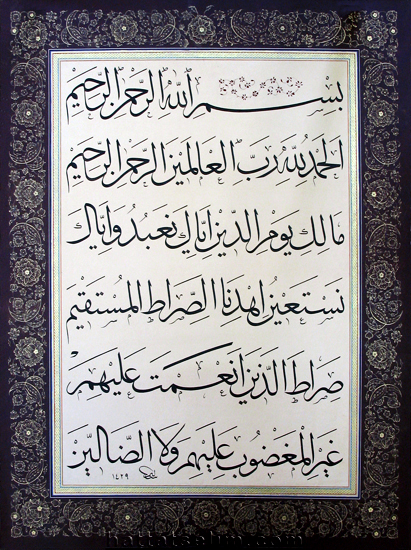 بسم الله الرحمن الرحيم
الحمد لله رب العالمين الرحمن الرحيم
مالك يوم الدين اياك نعبد واياك
نستعين اهدنا الصراط المستقيم
صراط الذين انعمت عليهم
غير المغضوب عليهم ولا الضالين
١٤٢٩
hattatselim.com